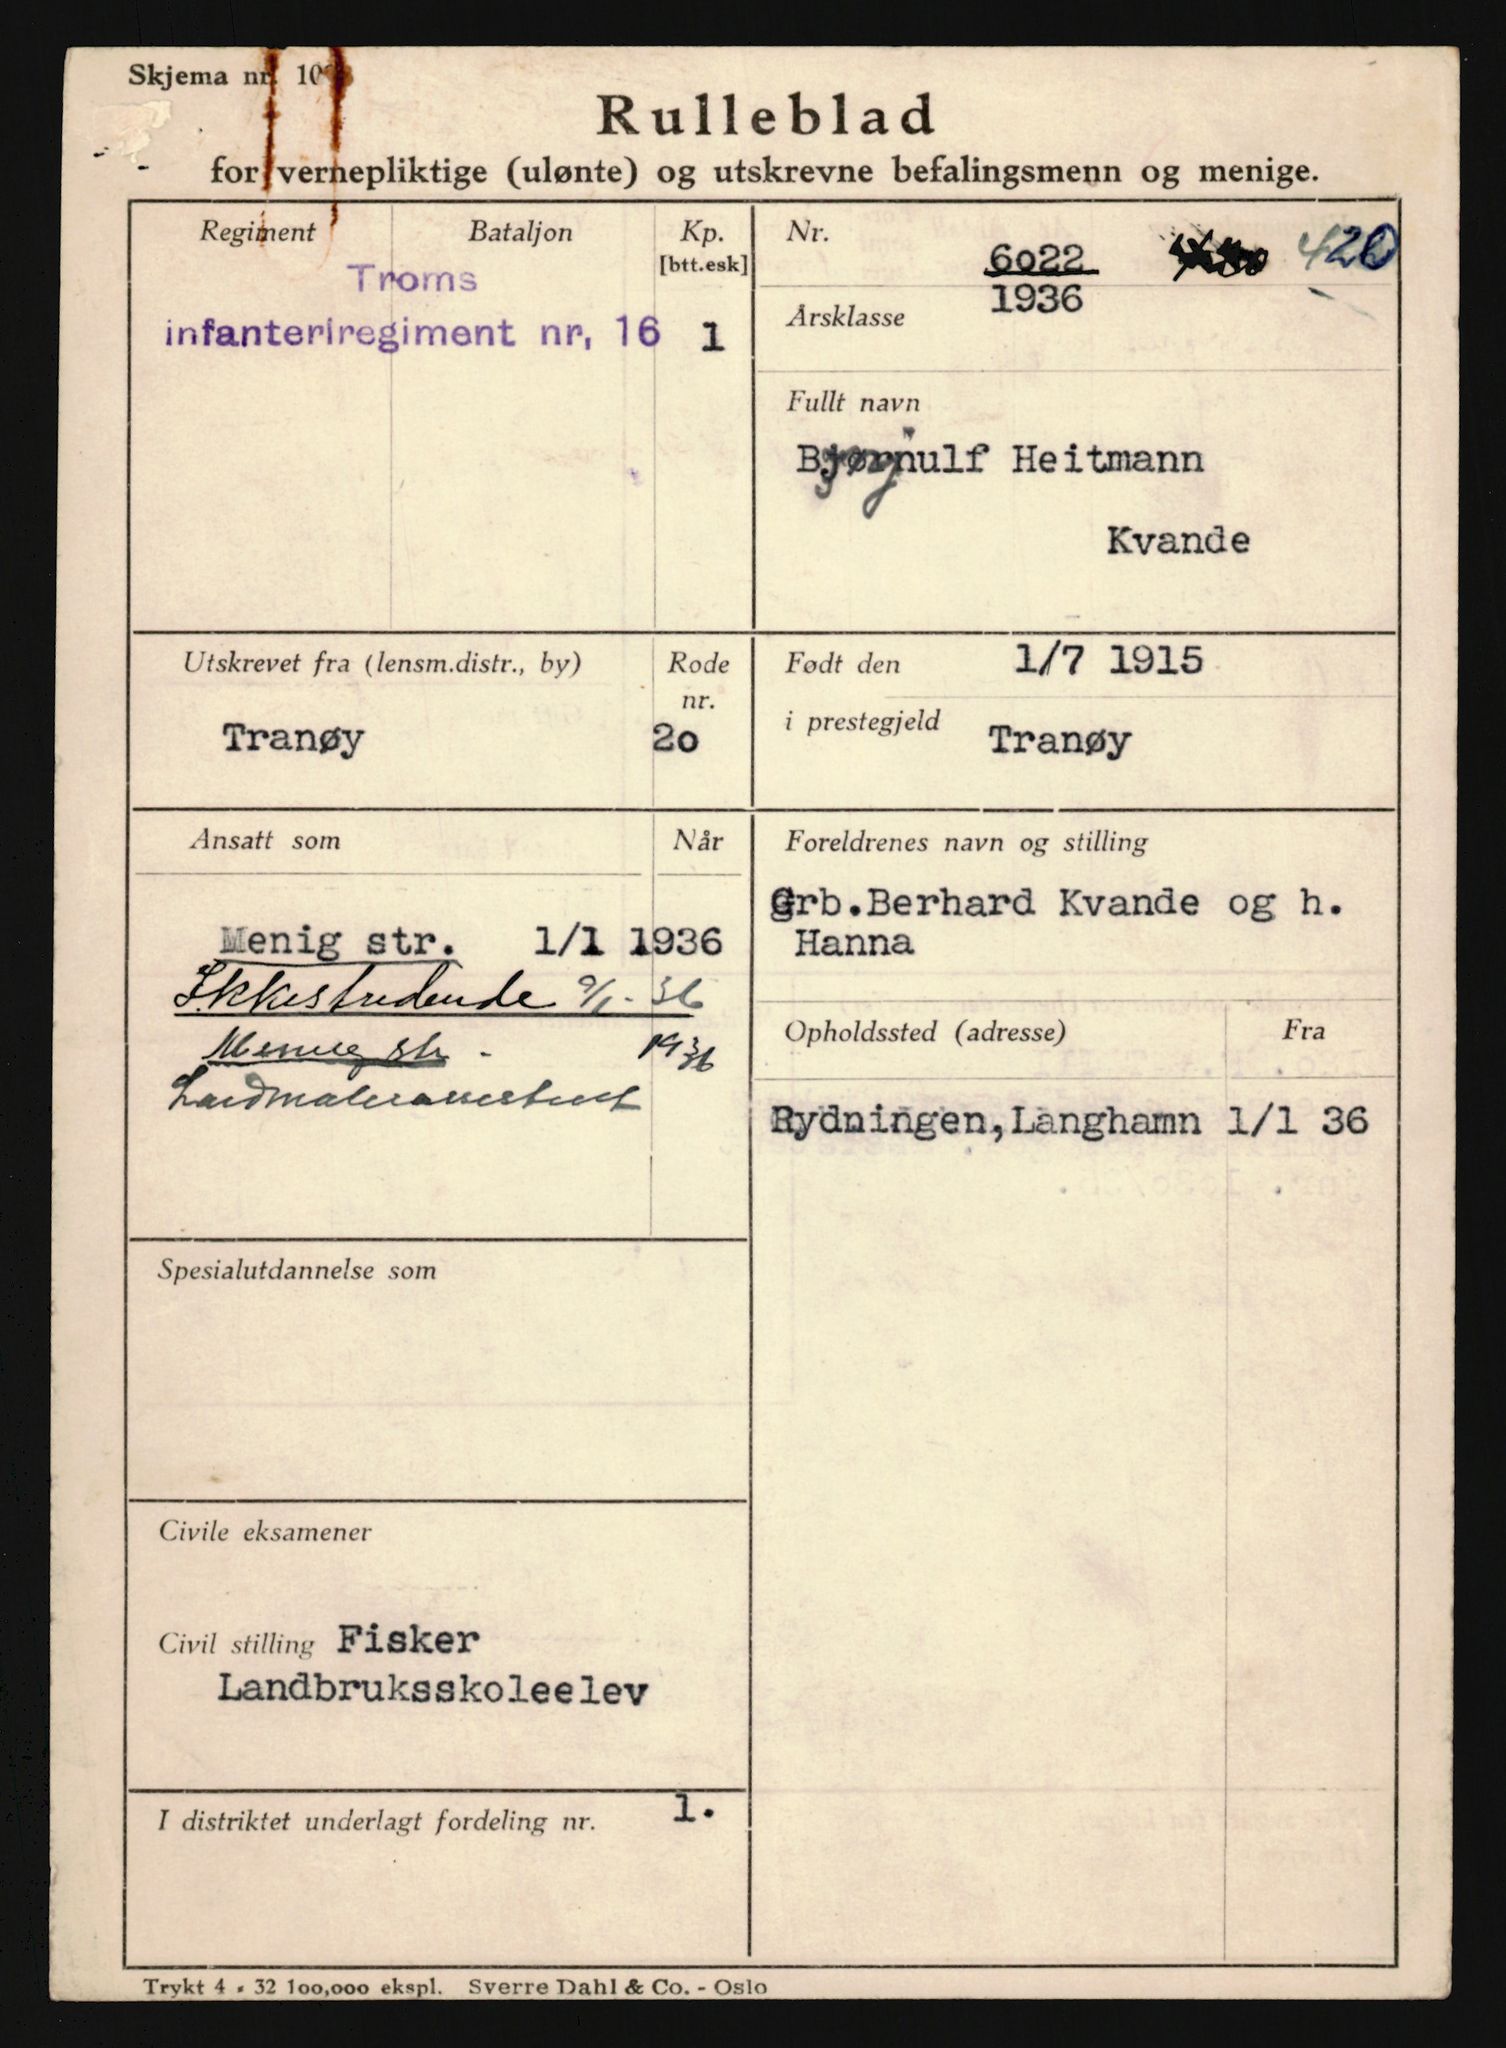 Skjema nr. 10
Rulleblad
for vernepliktige (ulønte) og utskrevne befalingsmenn og menige.
Regiment
Bataljon
Kp.
[btt.esk]
Troms
infanteriregiment nr, 16
1
Nr.
6022
420
Årsklasse
1936
Fullt navn
ulf Heitmann
Kvande
Utskrevet fra (lensm.distr., by)
Rode
nr.
Tranøy
2o
Født den
1/7 1915
i prestegjeld
Tranøy
Ansatt som
Når
Menig str. 1/1 1936
Ikkestridende 9/1 - 36
Menig str - 1936
Landmålerassistent
Foreldrenes navn og stilling
Grb.Berhard Kvande og h.
Hanna
Opholdssted (adresse)
Fra
Rydningen,Langhamn 1/1 36
Spesialutdannelse som
Civile eksamener
Civil stilling Fisker
Landbruksskoleelev
I distriktet underlagt fordeling nr. 1.
Trykt 4 - 32 100,000 ekspl. Sverre Dahl & Co. - Oslo